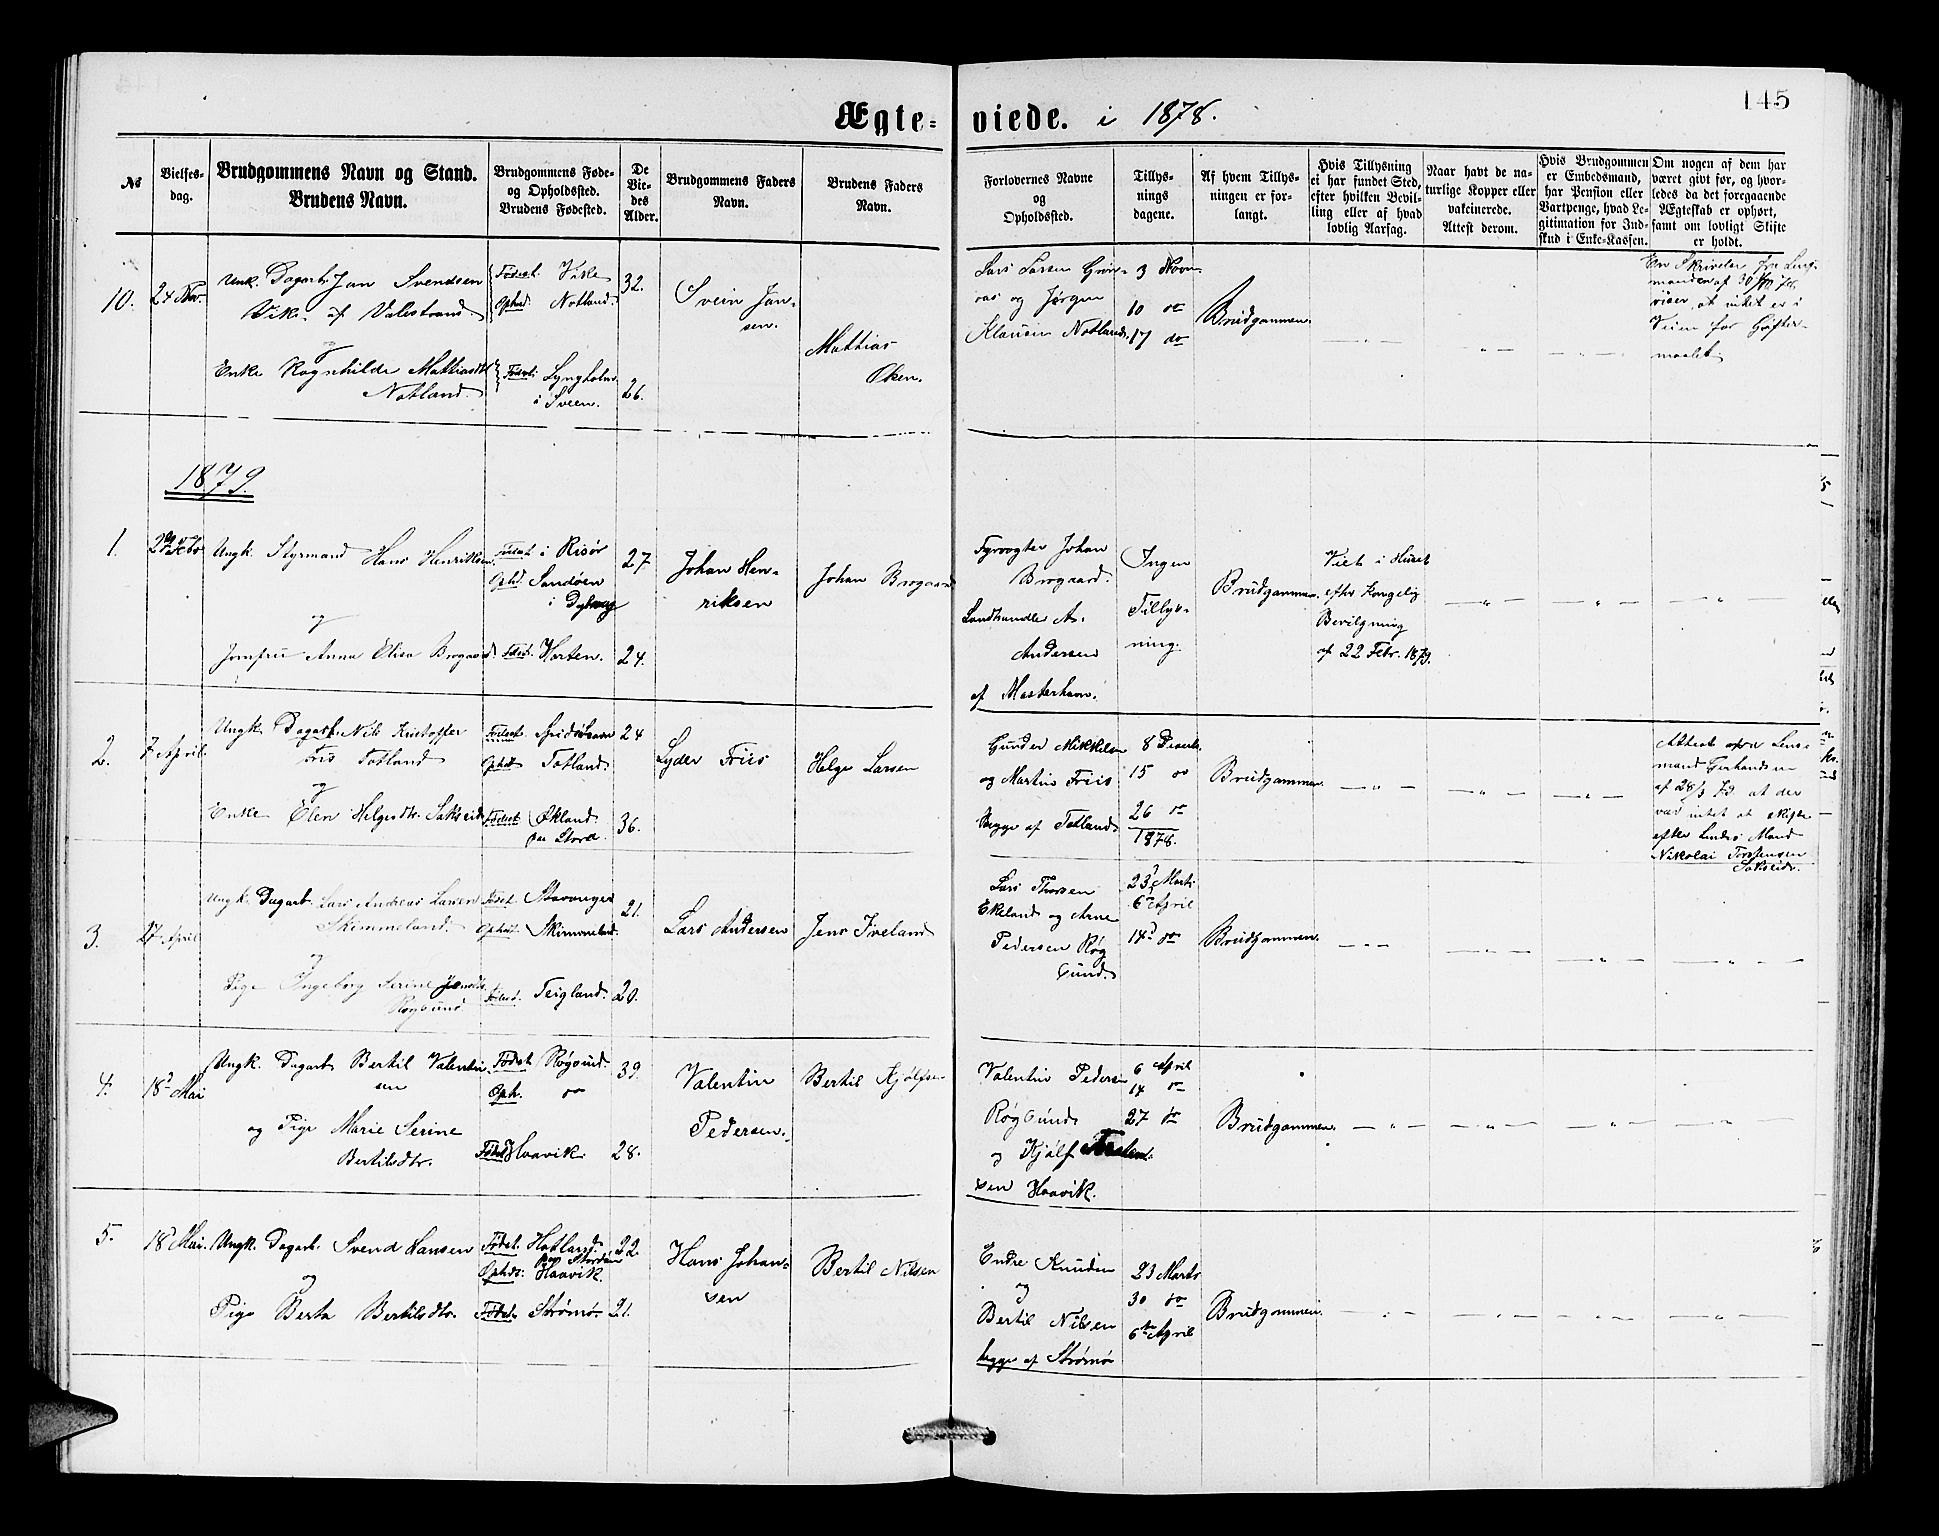 145
Ægte- viede. i 1878.
№
Vielses-
dag.
Brudgommens Navn og Stand.
Brudens Navn.
Brudgommens Føde-
og Opholdssted.
Brudens Fødested.
De
Vie-
des
Alder.
Brudgommens Faders
Navn.
Brudens Faders
Navn.
Forlovernes Navne
og
Opholdssted.
Tillys-
nings
dagene.
Af hvem Tillys-
ningen er for-
langt.
Hvis Tillysning
ei har fundet Sted,
efter hvilken Bevil-
ling eller af hvad
lovlig Aarsag.
Naar havt de na-
turlige Kopper eller
vakcinerede.
Attest derom.
Hvis Brudgommen
er Embedsmand,
har Pension eller
Vartpenge, hvad Le-
gitimation for Ind-
skud i Enke-Kassen.
Om nogen af dem har
været givt før, og hvor-
ledes da det foregaaende
Ægteskab er ophørt,
samt om lovligt Skifte
er holdt.
10. 24 Nov.
Unk. Dagarb. Jan Svendsen
Vik af Valestrand
og
Enke Ragnhilde Mathiasdt
Notland.
Fødest. Vike
Ophd. Notland.
Fødest. Lyngholm
i Sveen.
32.
26.
Svein Jan-
sen.
Mathias
Oken.
Lars Larsen
og Jørgen
Klausen Notland.
3 Novn.
10 do
17 do
Brudgommen.
En Skrivelse fra Lens-
manden af 30/ 78
viser, at intet er i
Veien for Gifter-
maalet
1879.
1. Febr.
Ungk. Styrmand Hans Henriksen.
og
Jomfru Anna Elisa Brogaard.
Fødest. i Risør
Ophd. Sandøen
i Dybvaag
Fødest. Horten.
27
24.
Johan Hen-
riksen
Johan Brogaard
Fyrvogter Johan
Brogaard.
Landhandler A.
Andersen
af Mosterhavn.
Ingen
Tillys-
ning.
Brudgommen.
Viet i Huset
efter Kongelig
Bevilgning
af 22 Febr. 1879.
2. 7 April.
Ungk. Dagarb. Nils Kristoffer
Friis Totland
og
Enke Elen Helgesdtr. Sakseid
Fødest.
Ophold Totland.
Fødest. Økland
paa Stord.
24
36.
Lyder Friis
Helge Larsen
Gunder Mikkelsen
og Martin Friis
Begge af Totland
8 Decemb.
15 do
26 do
1878.
Brudgommen
Attest fra Lens-
mand Gerhardsen
af 28/3 79 at der
var intet at skifte
efter hendes Mand
Nikolai Torstensen
Sakseid.
3. 27 April
Ungk. Dagarb. Lars Andreas Larsen
Skimmeland.
og
Pige Ingeborg Serine Jensdtr.
Røgsund
Fødest. Stavanger
Ophold. Skimmeland.
Fødest. Teigland.
21.
20.
Lars Andersen
Jens Iveland
Lars Thorsen
Ekeland og Arne
Pedersen Røg
sund.
23 Marts
6 April
14 do
Brudgommen.
4. 18 Mai
Ungk. Dagarb. Bertil Valentin
sen
og Pige Marie Serine
Bertilsdtr.
Fødest. Røgsund.
Oph. do
Fødest. Haavik.
39.
28.
Valentin
Pedersen.
Bertil Kjølfsen
Valentin Pedersen
Røgsund
og Kjølf Torsten-
sen Haavik.
6 April
14 do
27 do
Brudgommen.
5. 18 Mai.
Ungk. Dagarb. Svend Hansen
og
Pige Berta Bertilsdtr.
Fødest. Hatland.
paa Storden
Ophds: Haavik.
Fødest. Strømø.
22.
21.
Hans Johan-
sen
Bertil Nilsen
Endre Knudsen
og
Bertil Nilsen
begge af Strømø
23 Marts
30 do
6te April
Brudgommen.